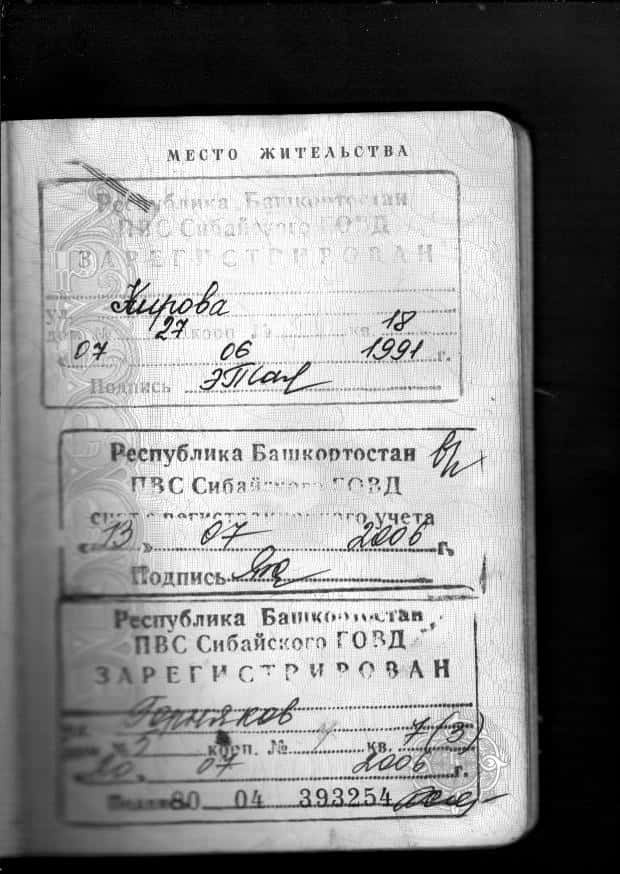 МЕСТО ЖИТЕЛЬСТВА
Республика Башкортостан
ПВС Сибайского ГОВД
ЗАРЕГИСТРИРОВАН
ул. Кирова
дом № 27 корп. кв. 18
« 07 » 06 1991 г.
Подпись
Республика Башкортостан
ПВС Сибайского ГОВД
снят с регистрационного учета
« 13 » 07 2006 г.
Подпись
Республика Башкортостан
ПВС Сибайского ГОВД
ЗАРЕГИСТРИРОВАН
Горняков
5 корп. № кв. 7(3)
« 20 » 07 2006 г.
80 04 393254